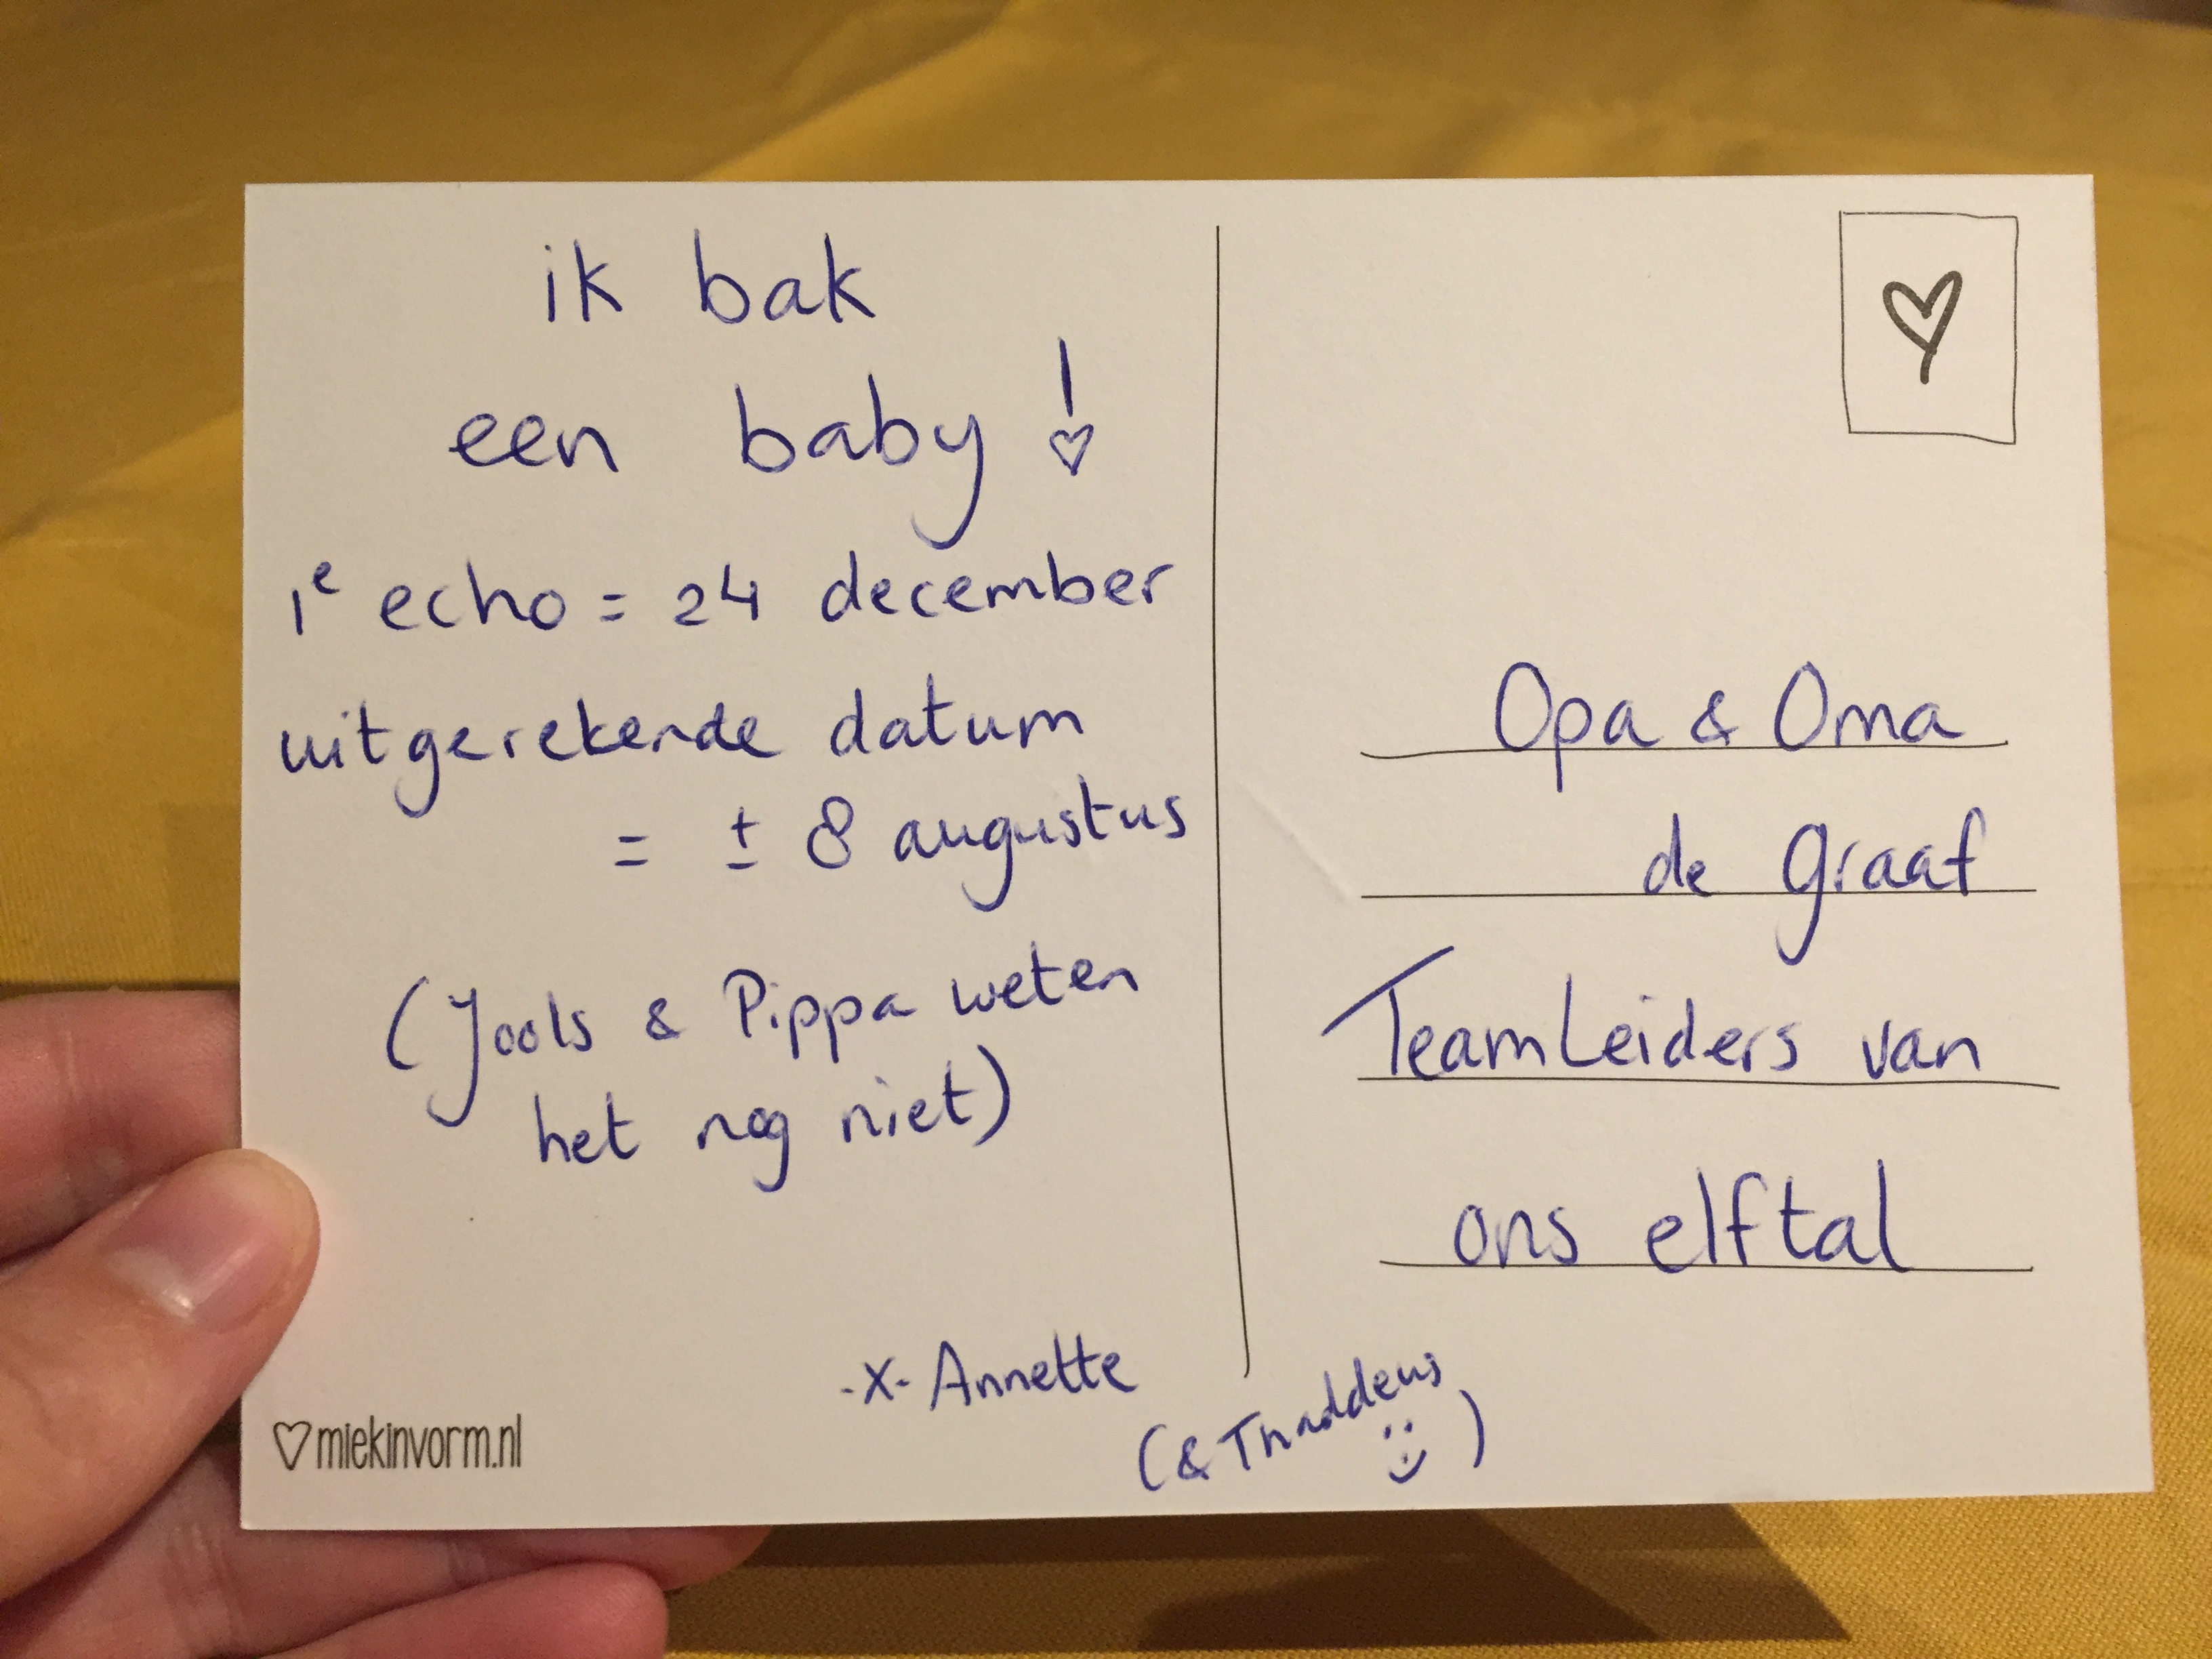 ik bak
een baby!
1e echo = 24 december
uitgerekende datum
= ± 8 augustus
(Jools & Pippa weten
het nog niet)
-x- Annette
(& Thaddeus
:))
♡miekinvorm.nl
Opa & Oma
de graaf
TeamLeiders van
ons elftal